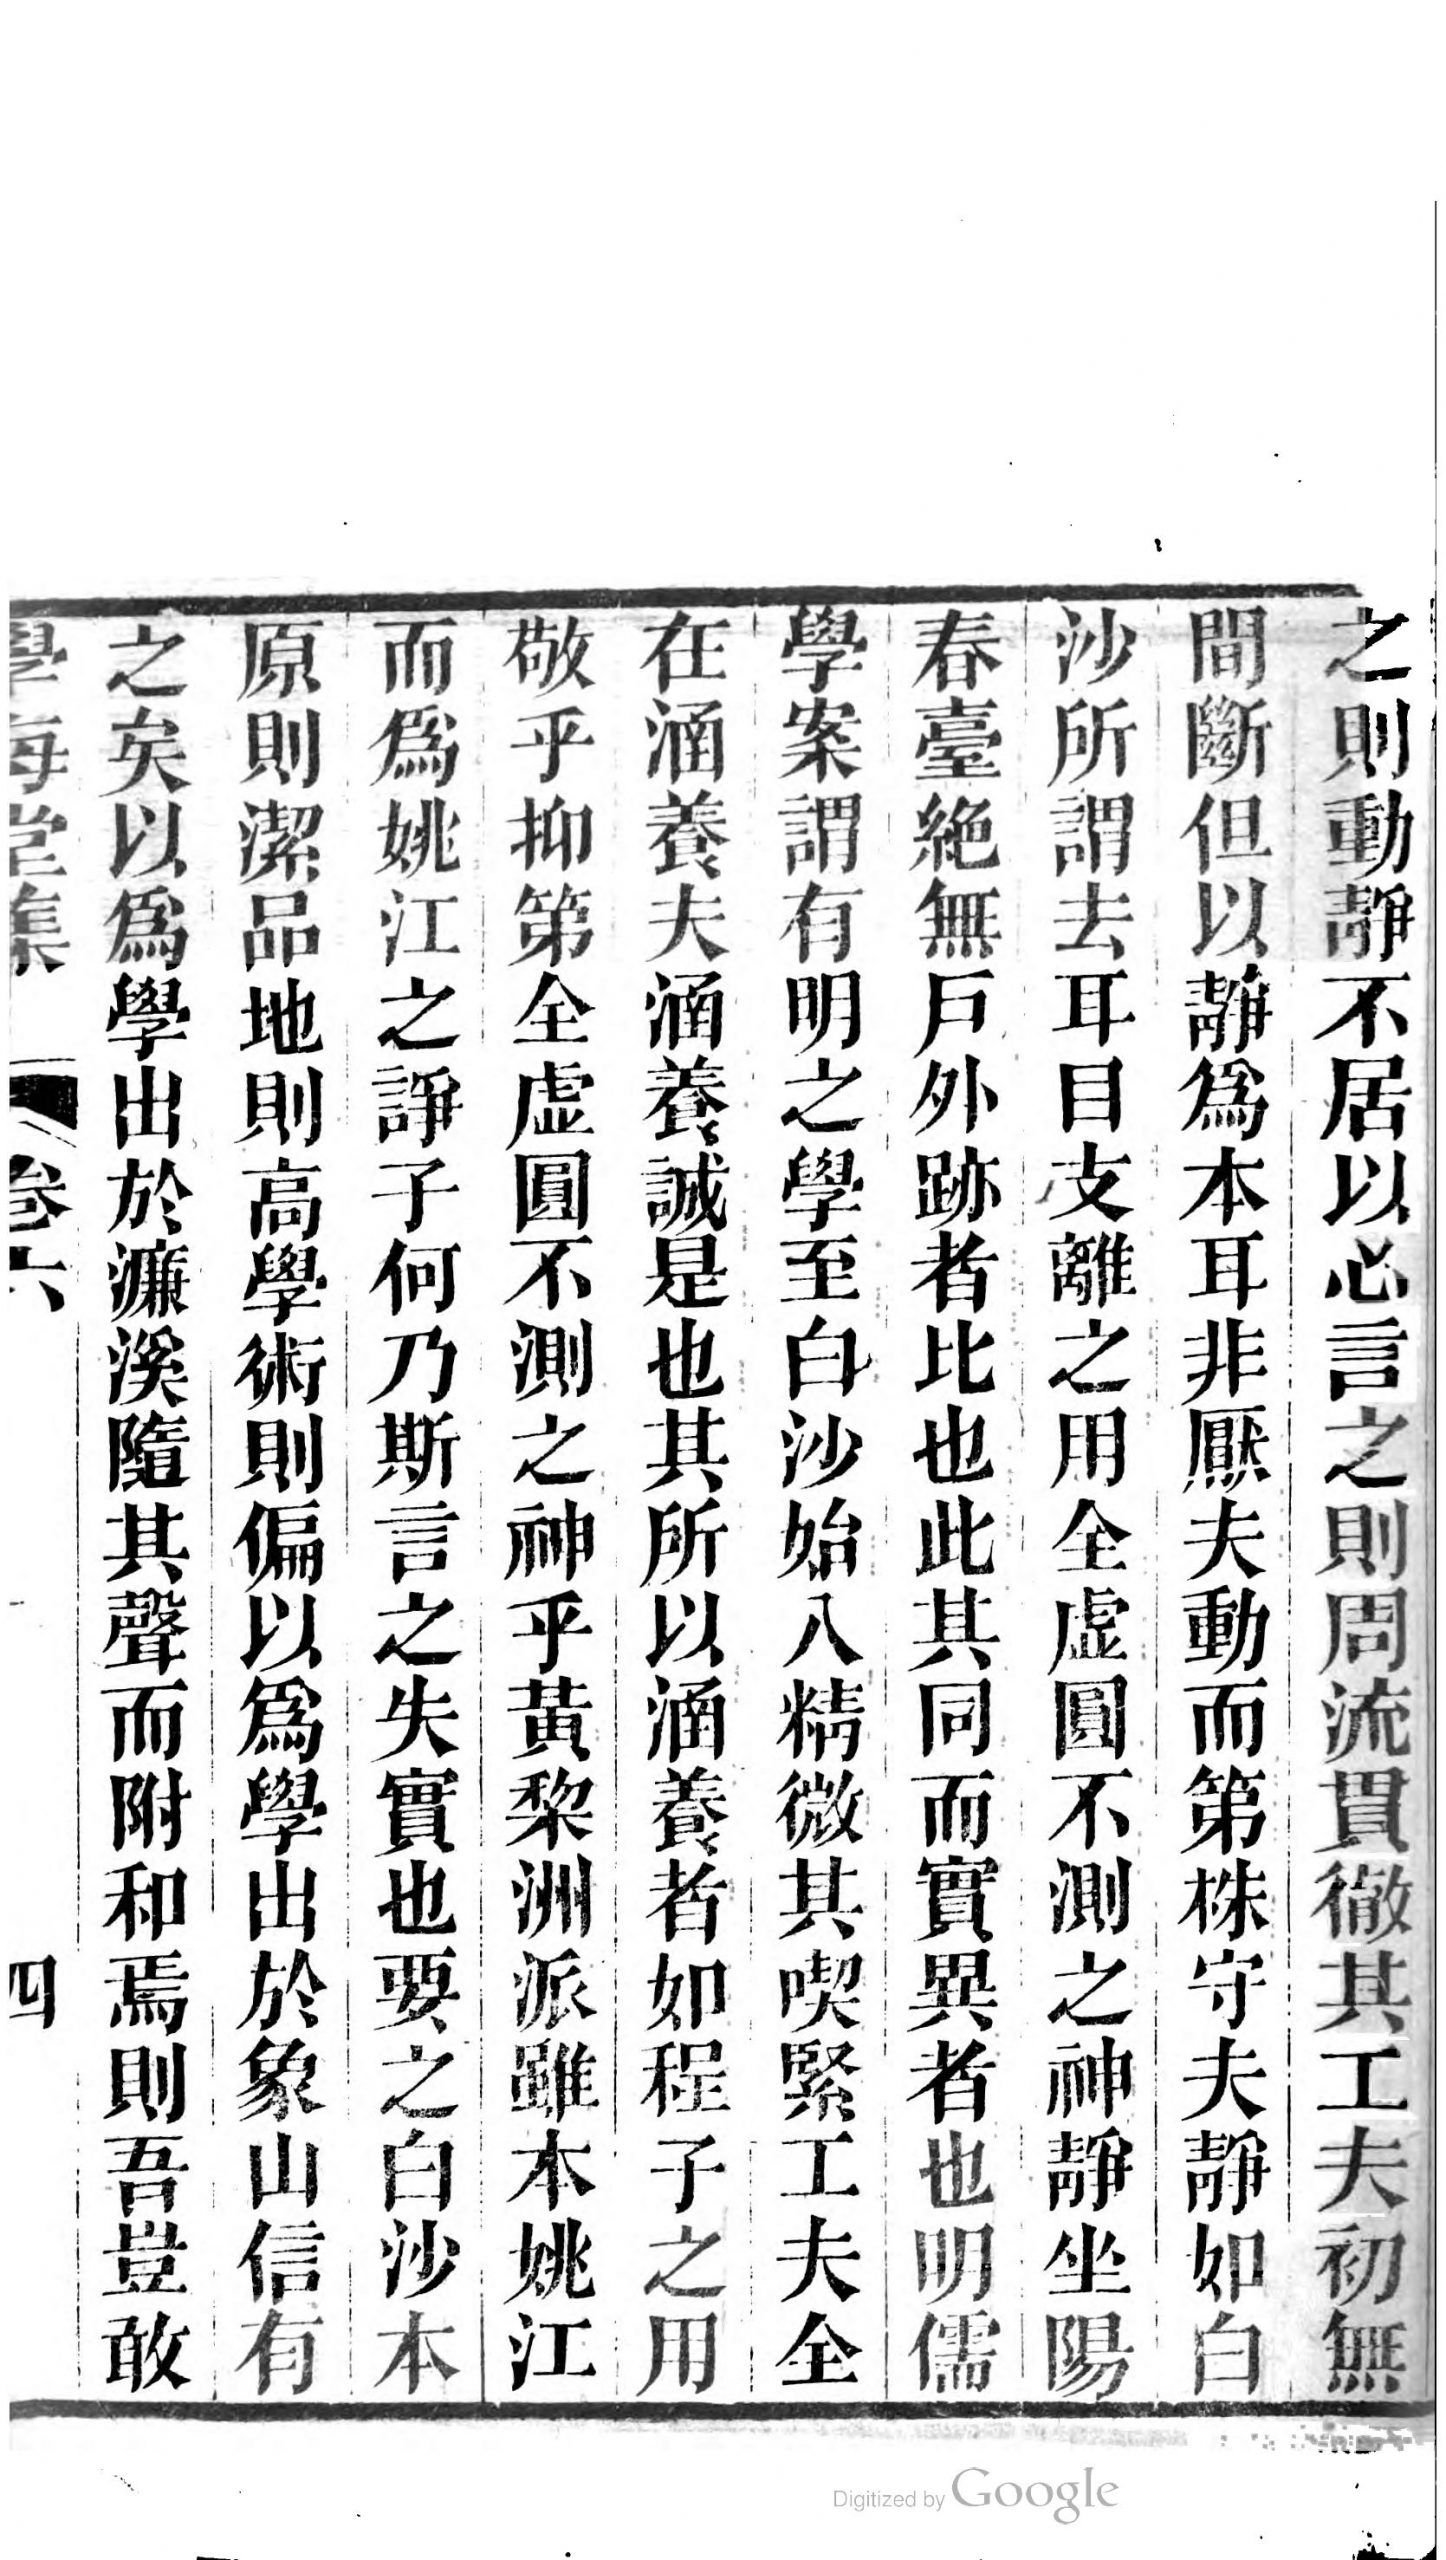 之則動靜不居以心言之則周流貫徹其工夫初無
間斷但以靜為本耳非厭夫動而第株守夫靜如白
沙所謂去耳目支離之用全虛圓不測之神靜坐陽
春臺絶無戶外跡者比也此其同而實異者也明儒
學案謂有明之學至白沙始入精微其喫緊工夫全
在涵養夫涵養誠是也其所以涵養者如程子之用
敬乎抑第全虛圓不測之神乎黃棃洲派雖本姚江
而為姚江之諍子何乃斯言之失實也要之白沙本
原則潔品地則高學術則偏以為學出於象山信有
之矣以為學出於濂溪隨其聲而附和焉則吾豈敢
學海堂集 卷六 四
Digitized by Google